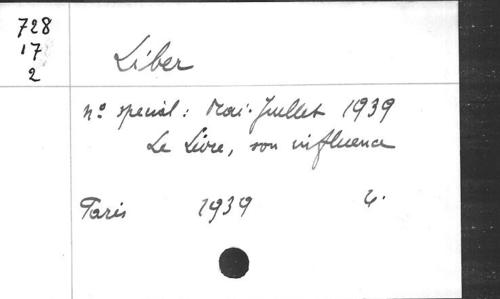 728
17
2
Liber
n° special: Mai-Juillet 1939
Le Livre, son influence
Paris 1939 4.